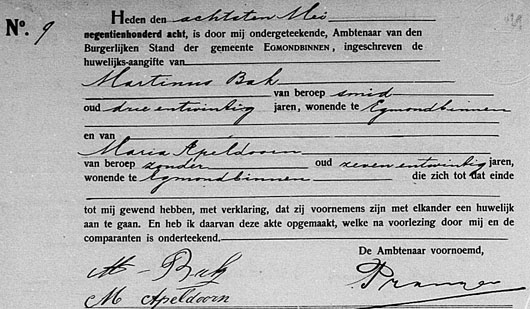 Nº. 9
Heden den achtsten Mei
negentienhonderd acht, is door mij ondergeteekende, Ambtenaar van den
Burgerlijken Stand der gemeente EGMONDBINNEN, ingeschreven de
huwelijks-aangifte van
Martinus Bak
van beroep smid
oud drie entwintig jaren, wonende te Egmondbinnen
en van
Maria Apeldoorn
van beroep zonder oud zeven entwintig jaren,
wonende te Egmondbinnen die zich tot dat einde
tot mij gewend hebben, met verklaring, dat zij voornemens zijn met elkander een huwelijk
aan te gaan. En heb ik daarvan deze akte opgemaakt, welke na voorlezing door mij en de
comparanten is onderteekend.
De Ambtenaar voornoemd,
Bak
M Apeldoorn